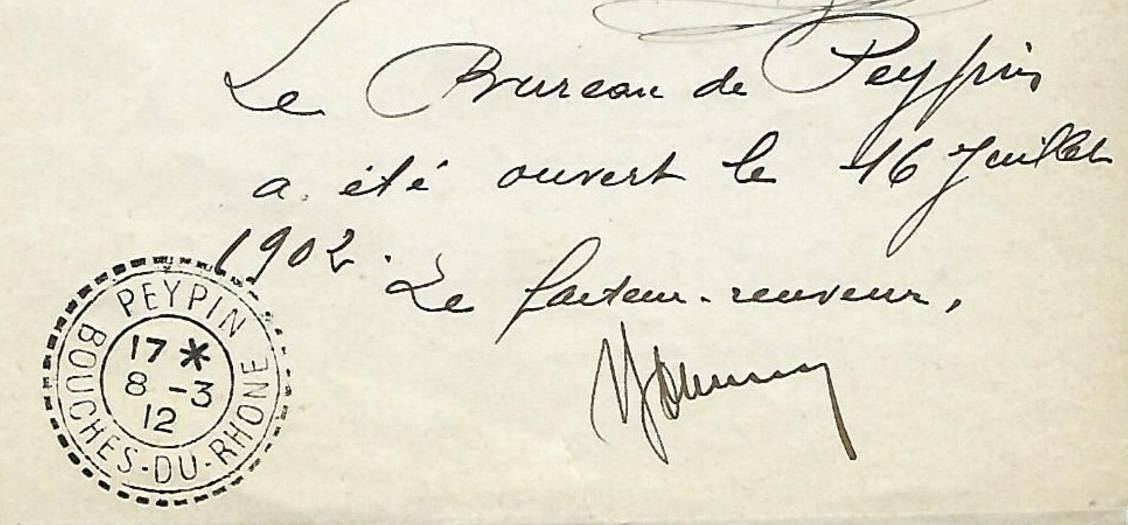 Le Bureau de Peypin
a été ouvert le 16 Juillet
1902.
Le facteur-receveur,
PEYPIN
17 *
8 -3
12
BOUCHES-DU-RHONE